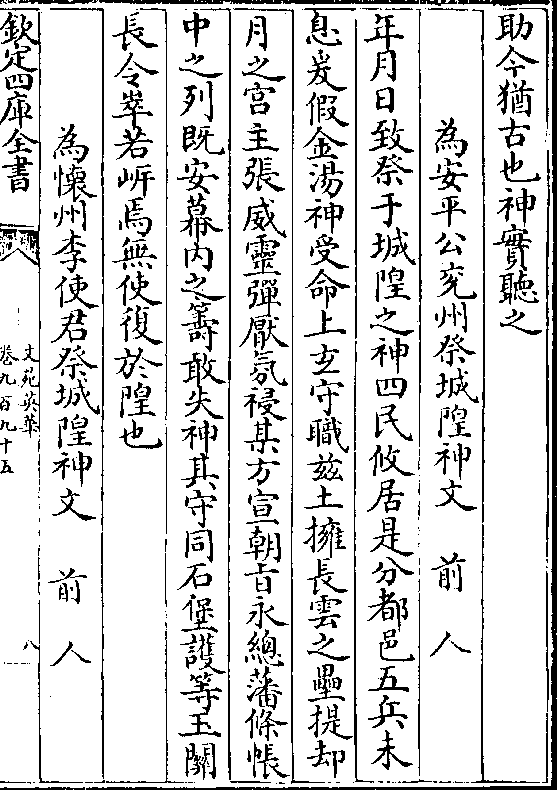 助今猶古也神實聽之
為安平公兖州祭城隍神文　前人
年月日致祭于城隍之神四民攸居是分都邑五兵未
息爰假金湯神受命上玄守職茲土擁長雲之壘提却
月之宮主張威靈彈厭氛祲某方宣朝㫖永總藩條帳
中之列既安幕内之籌敢失神其守同石堡護等玉關
長令崒若岍焉無使復於隍也
為懷州李使君祭城隍神文　前人
欽定四庫全書
文苑英華
卷九百九十五
八